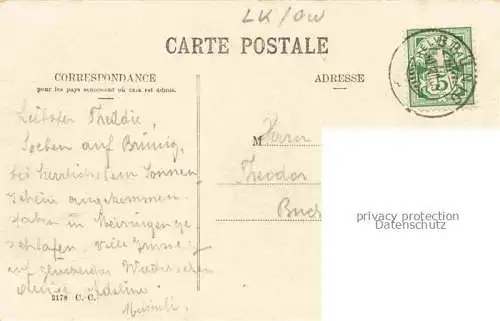 LK/OW
CARTE POSTALE
CORRESPONDANCE
pour les pays seulement où cela est admis.
ADRESSE
5
Liebster Theddie,
Soeben auf Brünig,
bei herrlichstem Sonnen
schein angekommen.
haben in Meiringen ge
schlafen. Viele Grüsse
auf glückliches Wiedersehen
Adeline.
M Herrn
Theodor
Buch
privacy protection
Datenschutz
3178 C. C.